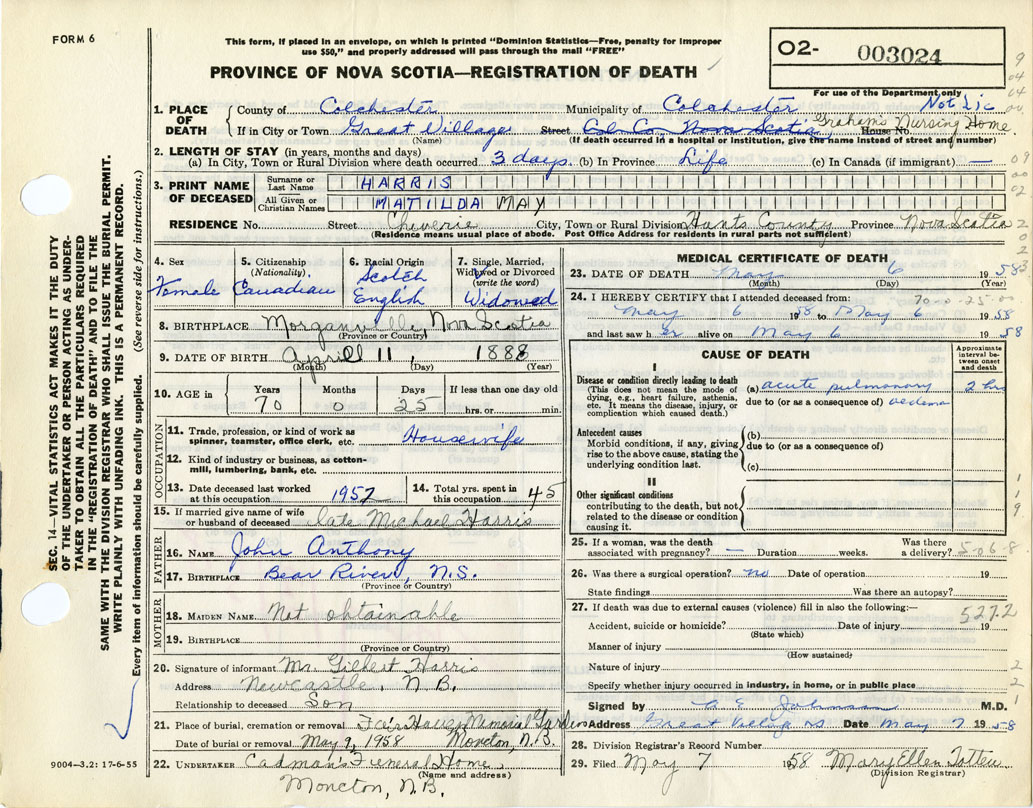 FORM 6
This form, if placed in an envelope, on which is printed "Dominion Statistics—Free, penalty for improper
use $50," and properly addressed will pass through the mail "FREE"
PROVINCE OF NOVA SCOTIA—REGISTRATION OF DEATH
02- 003024
For use of the Department only
Not Lic
1. PLACE OF DEATH County of Colchester Municipality of Colchester
If in City or Town Great Village Street Col. Co. Nova Scotia, House No. Graham's Nursing Home
(Name) (If death occurred in a hospital or institution, give the name instead of street and number)
2. LENGTH OF STAY (in years, months and days)
(a) In City, Town or Rural Division where death occurred 3 days. (b) In Province Life (c) In Canada (if immigrant) —
3. PRINT NAME OF DECEASED Surname or Last Name HARRIS
All Given or Christian Names MATILDA MAY
RESIDENCE No. Street Cheverie City, Town or Rural Division Hants County Province Nova Scotia
(Residence means usual place of abode. Post Office Address for residents in rural parts not sufficient)
4. Sex Female
5. Citizenship (Nationality). Canadian
6. Racial Origin Scotch English
7. Single, Married, Widowed or Divorced (write the word) Widowed
8. BIRTHPLACE Morganville, Nova Scotia
(Province or Country)
9. DATE OF BIRTH April 11, 1888
(Month) (Day) (Year)
10. AGE in Years 70 Months 0 Days 25 If less than one day old hrs. or min.
OCCUPATION
11. Trade, profession, or kind of work as spinner, teamster, office clerk, etc. Housewife
12. Kind of industry or business, as cotton-mill, lumbering, bank, etc.
13. Date deceased last worked at this occupation 1957 14. Total yrs. spent in this occupation 45
15. If married give name of wife or husband of deceased late Michael Harris
FATHER
16. NAME John Anthony
17. BIRTHPLACE Bear River, N.S.
(Province or Country)
MOTHER
18. MAIDEN NAME Not obtainable
19. BIRTHPLACE
(Province or Country)
20. Signature of informant Mr. Gilbert Harris
Address Newcastle, N.B.
Relationship to deceased Son
21. Place of burial, cremation or removal Fair Haven Memorial Gardens
Date of burial or removal May 9, 1958 Moncton, N.B.
22. UNDERTAKER Cadman's Funeral Home,
(Name and address)
Moncton, N.B.
9004—3.2: 17-6-55
MEDICAL CERTIFICATE OF DEATH
23. DATE OF DEATH May 6 1958
(Month) (Day) (Year)
24. I HEREBY CERTIFY that I attended deceased from: 70-0 25-00
May 6 1958 to May 6 1958
and last saw her alive on May 6 1958
CAUSE OF DEATH
Approximate interval between onset and death
I
Disease or condition directly leading to death (a) acute pulmonary 2 hrs
(This does not mean the mode of dying, e.g., heart failure, asthenia, etc. It means the disease, injury, or complication which caused death.)
due to (or as a consequence of) oedema
Antecedent causes
Morbid conditions, if any, giving rise to the above cause, stating the underlying condition last.
(b)
due to (or as a consequence of)
(c)
II
Other significant conditions contributing to the death, but not related to the disease or condition causing it.
25. If a woman, was the death associated with pregnancy? — Duration weeks. Was there a delivery? 506-8
26. Was there a surgical operation? no Date of operation 19
State findings Was there an autopsy?
27. If death was due to external causes (violence) fill in also the following:— 527.2
Accident, suicide or homicide? Date of injury 19
(State which)
Manner of injury
(How sustained)
Nature of injury
Specify whether injury occurred in industry, in home, or in public place
Signed by G E Johnson M.D.
Address Great Village NS Date May 7 1958
28. Division Registrar's Record Number
29. Filed May 7 1958 Mary Ellen Totten
(Division Registrar)
SEC. 14—VITAL STATISTICS ACT MAKES IT THE DUTY
OF THE UNDERTAKER OR PERSON ACTING AS UNDER-
TAKER TO OBTAIN ALL THE PARTICULARS REQUIRED
IN THE "REGISTRATION OF DEATH" AND TO FILE THE
SAME WITH THE DIVISION REGISTRAR WHO SHALL ISSUE THE BURIAL PERMIT.
WRITE PLAINLY WITH UNFADING INK. THIS IS A PERMANENT RECORD.
Every item of information should be carefully supplied. (See reverse side for instructions.)